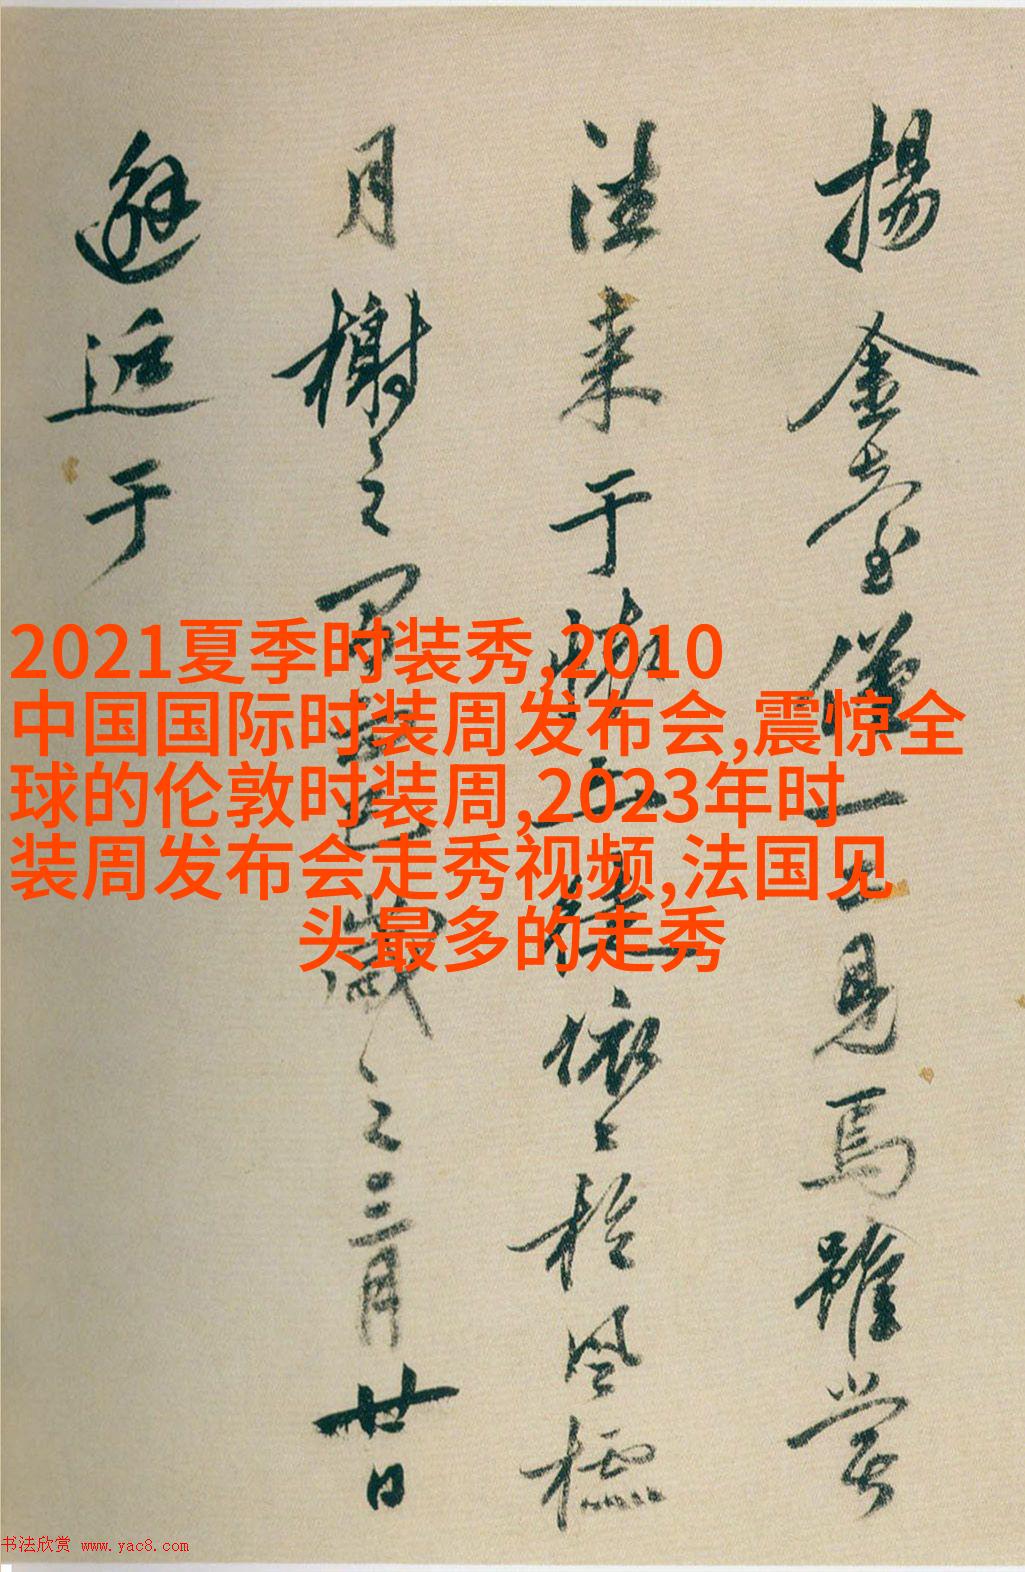 揚金臺僅一二見焉雖嘗
往来于
依々於風標
月榭之
歲之三月廿日
邂逅于
2021夏季时装秀,2010
中国国际时装周发布会,震惊全
球的伦敦时装周,2023年时
装周发布会走秀视频,法国见
头最多的走秀
书法欣赏 www.yac8.com